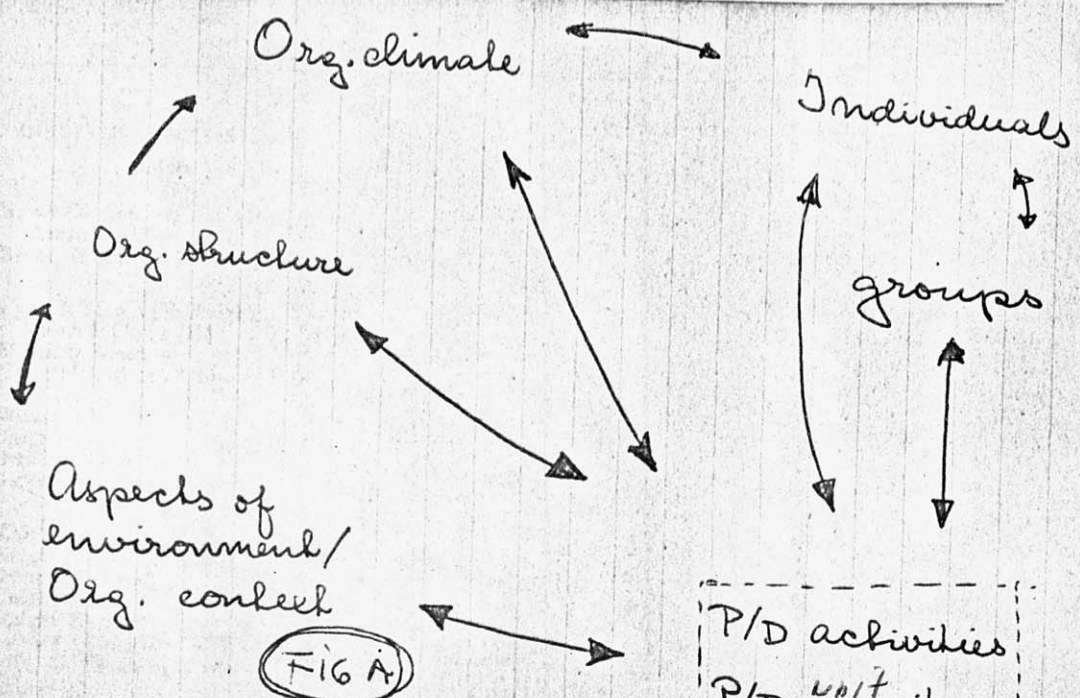 Org. climate
Individuals
Org. structure
groups
Aspects of
environment/
Org. context
FIG A
P/D activities
P/D unit